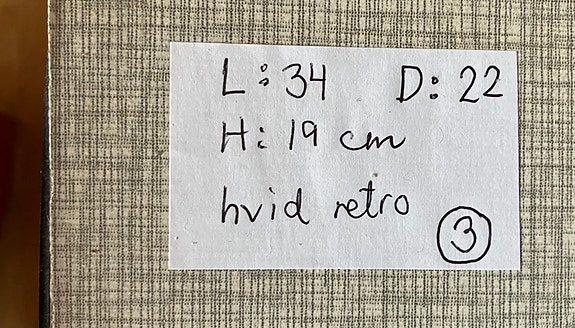 L: 34 D: 22
H: 19 cm
hvid retro
3